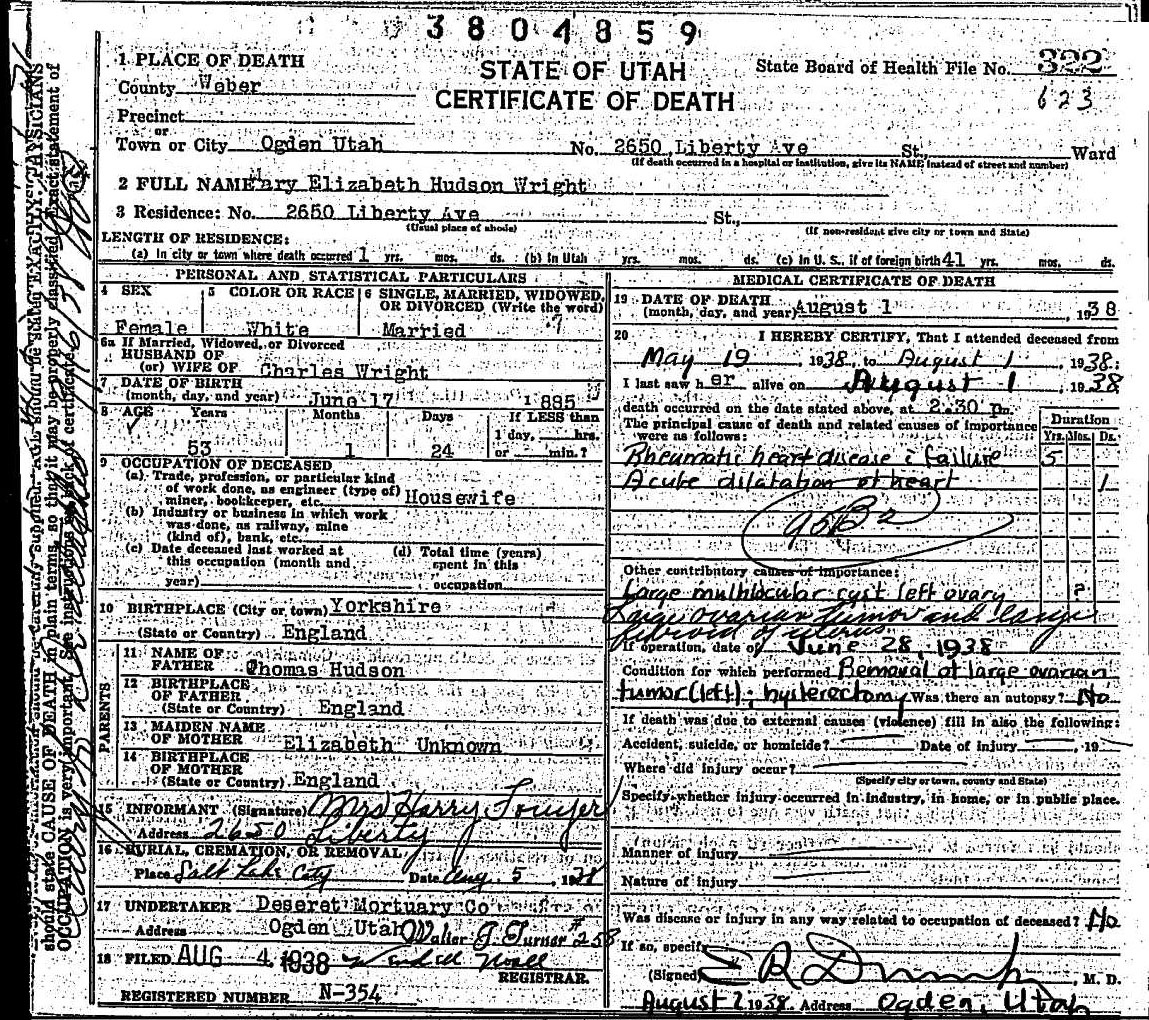 3804859
STATE OF UTAH
CERTIFICATE OF DEATH
State Board of Health File No. 322
623
1 PLACE OF DEATH
County Weber
Precinct
or
Town or City Ogden Utah No. 2650 Liberty Ave St., Ward
(If death occurred in a hospital or institution, give its NAME instead of street and number)
2 FULL NAME Mary Elizabeth Hudson Wright
3 Residence: No. 2650 Liberty Ave St.,
(Usual place of abode) (If non-resident give city or town and State)
LENGTH OF RESIDENCE:
(a) In city or town where death occurred 1 yrs. mos. ds. (b) In Utah yrs. mos. ds. (c) In U. S., if of foreign birth 41 yrs. mos. ds.
PERSONAL AND STATISTICAL PARTICULARS
4 SEX 5 COLOR OR RACE 6 SINGLE, MARRIED, WIDOWED,
OR DIVORCED (Write the word)
Female White Married
6a If Married, Widowed, or Divorced
HUSBAND OF
(or) WIFE OF Charles Wright
7 DATE OF BIRTH
(month, day, and year) June 17 1885
8 AGE Years Months Days If LESS than
1 day, hrs.
53 1 24 or min.?
9 OCCUPATION OF DECEASED
(a) Trade, profession, or particular kind
of work done, as engineer (type of)
miner, bookkeeper, etc. Housewife
(b) Industry or business in which work
was done, as railway, mine
(kind of), bank, etc.
(c) Date deceased last worked at (d) Total time (years)
this occupation (month and spent in this
year) occupation
10 BIRTHPLACE (City or town) Yorkshire
(State or Country) England
PARENTS
11 NAME OF
FATHER Thomas Hudson
12 BIRTHPLACE
OF FATHER
(State or Country) England
13 MAIDEN NAME
OF MOTHER Elizabeth Unknown
14 BIRTHPLACE
OF MOTHER
(State or Country) England
15 INFORMANT (Signature) Mrs Harry
Address 2650 Liberty
16 BURIAL, CREMATION, OR REMOVAL
Place Salt Lake City Date Aug. 5, 1938
17 UNDERTAKER Deseret Mortuary Co
Address Ogden Utah Walter J. Turner #258
18 FILED AUG 4 1938
REGISTRAR.
REGISTERED NUMBER N-354
MEDICAL CERTIFICATE OF DEATH
19 DATE OF DEATH
(month, day, and year) August 1, 1938
20 I HEREBY CERTIFY, That I attended deceased from
May 19, 1938, to August 1, 1938.
I last saw her alive on August 1, 1938
death occurred on the date stated above, at 2:30 p.m.
The principal cause of death and related causes of importance
were as follows:
Duration
Yrs. Mos. Ds.
Rheumatic heart disease c failure 5
Acute dilatation of heart 1
95B2
Other contributory causes of importance:
Large multilocular cyst left ovary ?
Large ovarian tumor and large
fibroid of uterus
If operation, date of June 28, 1938
Condition for which performed Removal of large ovarian
tumor (left); hysterectomy Was there an autopsy? No
If death was due to external causes (violence) fill in also the following:
Accident, suicide, or homicide? Date of injury , 19
Where did injury occur?
(Specify city or town, county and State)
Specify whether injury occurred in industry, in home, or in public place.
Manner of injury
Nature of injury
Was disease or injury in any way related to occupation of deceased? No
If so, specify
(Signed) E R Dumke, M. D.
August 2 1938 Address Ogden, Utah
should state CAUSE OF DEATH in plain terms, so that it may be properly classified. Exact statement of
OCCUPATION is very important. See instructions on back of certificate.